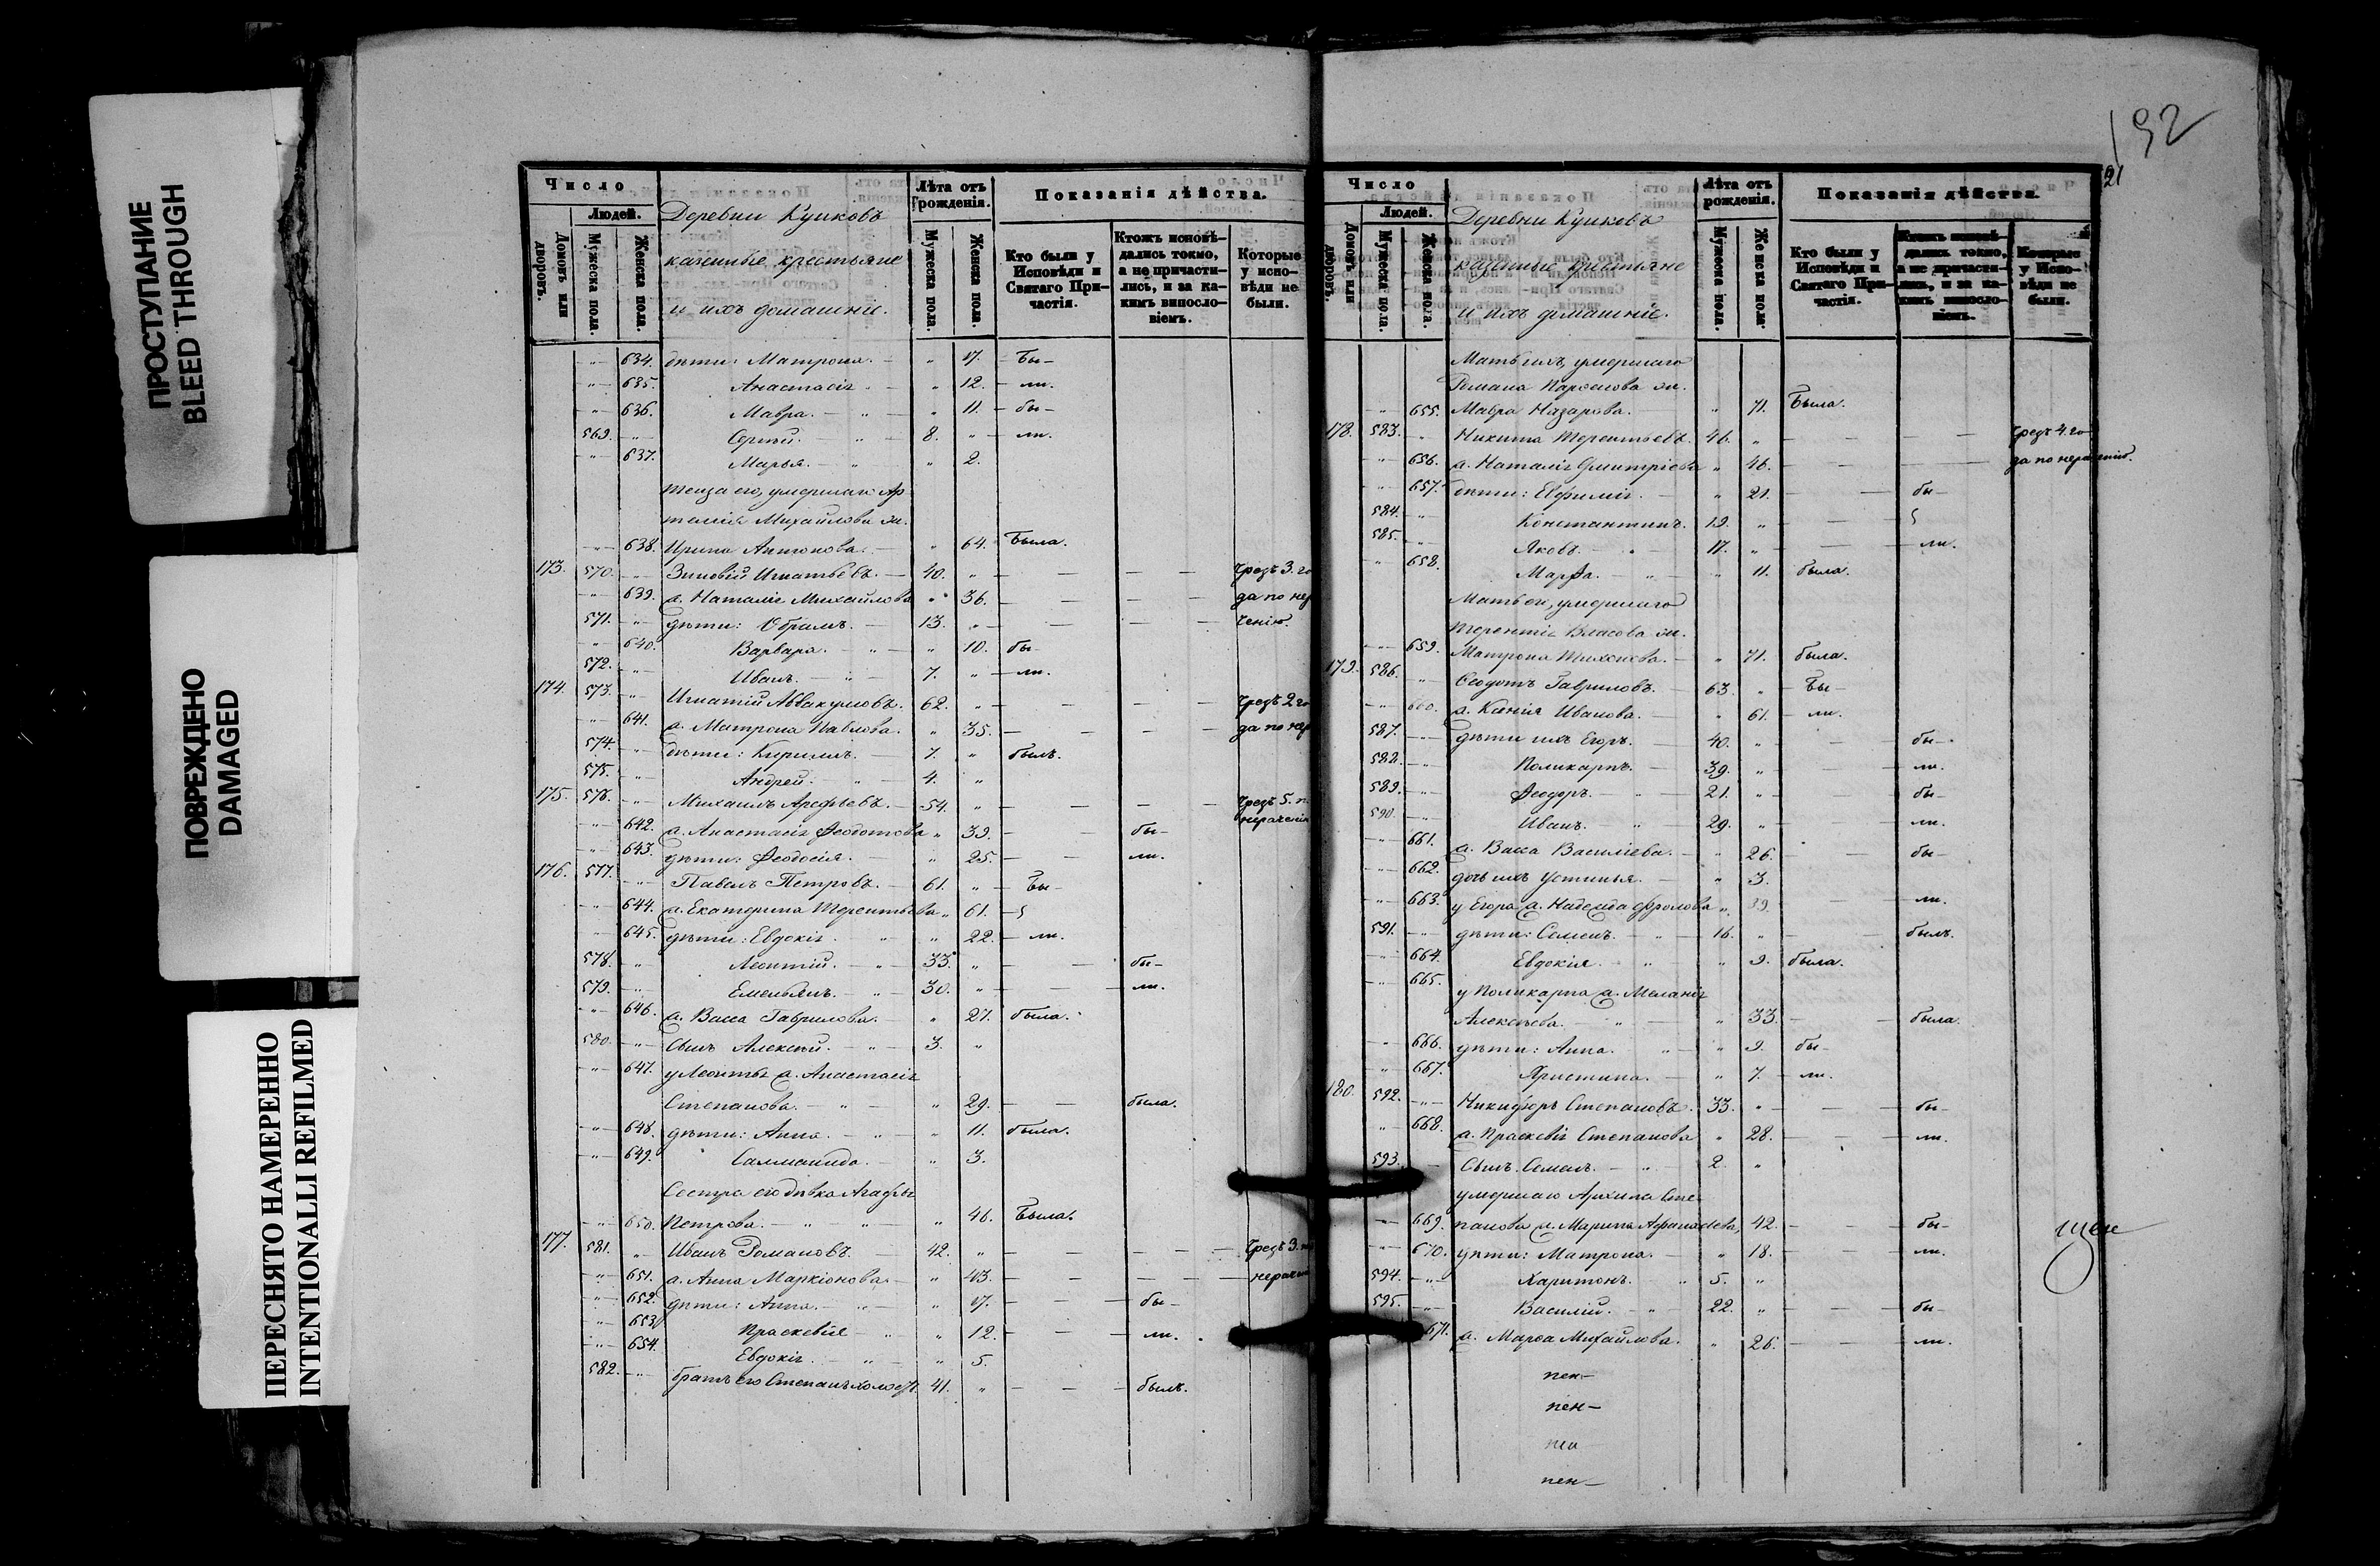 ПРОСТУПАНИЕ
BLEED THROUGH
ПОВРЕЖДЕНО
DAMAGED
ПЕРЕСНЯТО НАМЕРЕННО
INTENTIONALLI REFILMED
Число
Домовъ или дворовъ.
Людей.
Мужеска пола.
Женска пола.
Деревни Куиковъ
казенные крестьяне
и ихъ домашніе.
Лѣта отъ рожденія.
Мужеска пола.
Женска пола.
Показанія дѣйства.
Кто были у Исповѣди и Святаго Причастія.
Ктожъ исповѣдались токмо, а не причастились, и за какимъ винословіемъ.
Которые у исповѣди не были.
634. дѣти: Матрона. 17. Бы-
635. Анастасія 12. ли.
636. Мавра. 11. бы-
569. Сергѣй. 8. ли.
637. Марья. 2.
Теща его, умершаго Ар
темія Михайлова ж.
638. Ирина Антонова. 64. Была.
173. 570. Зиновій Игнатьевъ. 40. Чрезъ 3. го
639. а. Наталія Михайлова 36. да по нер
571. дѣти: Абрамъ. 13. ченію.
640. Варвара. 10. бы-
572. Иванъ. 7. ли.
174. 573. Игнатій Аввакумовъ. 62. Чрезъ 2 го
641. а. Матрона Павлова. 35. да по нер
574. дѣти: Кирилъ. 7. былъ.
575. Андрей. 4.
175. 576. Михаилъ Арефьевъ. 54. Чрезъ 5. п.
642. а. Анастасія Ѳедотова 39. бы- нераченію
643. дѣти: Ѳеодосія. 25. ли.
176. 577. Павелъ Петровъ. 61. Бы-
644. а. Екатерина Терентьева 61.
645. дѣти: Евдокія. 22. ли.
578. Леонтій. 33. бы-
579. Емельянъ. 30. ли.
646. а. Васса Гаврилова. 27. была.
580. Сынъ Алексѣй. 3.
647. у Леонтья а. Анастасія
Степанова. 29. была.
648. дѣти: Анна. 11. была.
649. 3.
Сестра его дѣвка Агафья
650. Петрова. 46. Была.
177. 581. Иванъ Романовъ. 42. Чрезъ 3.
651. а. Анна Маркіонова 43. нерачен
652. дѣти: Анна. 17. бы-
653. Праскевія 12. ли.
654. Евдокія. 5.
582. братъ его Степанъ холост. 41. былъ.
192
21
Число
Домовъ или дворовъ.
Людей.
Мужеска пола.
Женска пола.
Деревни Куиковъ
казенные крестьяне
и ихъ домашніе.
Лѣта отъ рожденія.
Мужеска пола.
Женска пола.
Показанія дѣйства.
Кто были у Исповѣди и Святаго Причастія.
Ктожъ исповѣдались токмо, а не причастились, и за какимъ винословіемъ.
Которые у Исповѣди не были.
Мать ихъ, умершаго
Романа ж.
655. Мавра Назарова. 71. Была.
178. 583. Никита Терентьевъ. 46. Чрезъ 4. го
656. а. Наталія Дмитріева 46. да по нераченію.
657. дѣти: Евфимія. 21. бы-
584. Константинъ. 19.
585. Яковъ. 17. ли.
658. Марѳа. 11. была.
Мать его, умершаго
Терентія Власова ж.
659. Матрона Тихонова. 71. была.
179. 586. Ѳедотъ Гавриловъ. 63. Бы-
660. а. Ксенія Иванова. 61. ли.
587. дѣти ихъ Егоръ. 40. бы-
588. Поликарпъ. 39. ли.
589. Ѳеодоръ. 21. бы-
590. Иванъ. 29. ли.
661. а. Васса Василіева. 26. бы-
662. дочь ихъ Устинья. 3.
663. у Егора а. Надежда Фролова 39. ли.
591. дѣти: Семенъ. 16. былъ.
664. Евдокія. 9. была.
665. у Поликарпа а. Меланія
Алексѣева. 33. была.
666. дѣти: Анна. 9. бы-
667. Христина. 7. ли.
180. 592. Никифоръ Степановъ. 33. бы-
668. а. Праскевія Степанова 28. ли.
593. Сынъ Семенъ. 2.
умершаго Архипа Сте
669. панова ж. Марина 42. бы-
670. дѣти: Матрона. 18. ли.
594. Харитонъ. 5.
595. Василій. 22. бы-
671. а. Марѳа Михайлова. 26. ли.